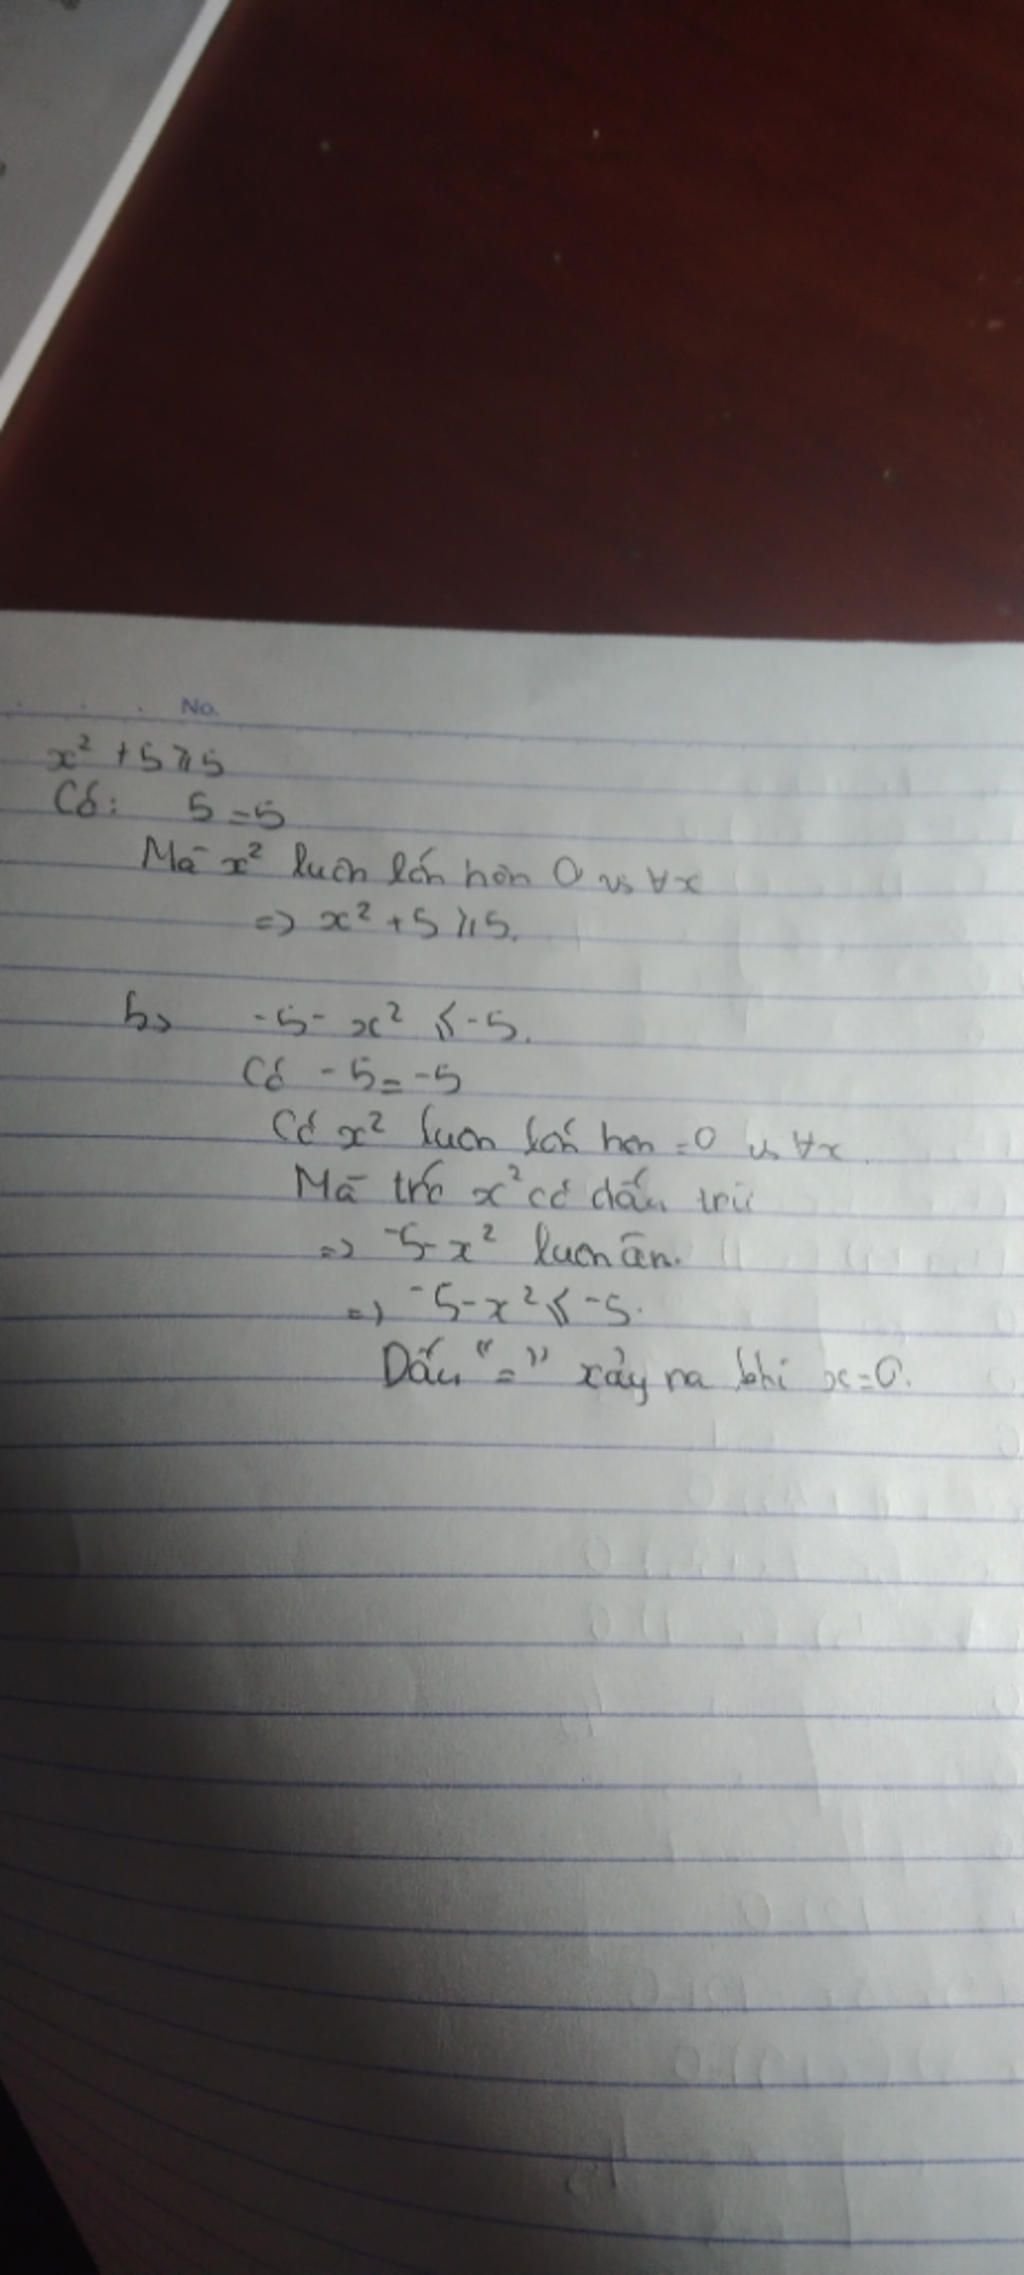 No.
x² + 5 ⩾ 5
Có: 5 = 5
Mà x² luôn lớn hơn 0 vs ∀x
=> x² + 5 ⩾ 5.
b> -5 - x² ⩽ -5.
Có -5 = -5
Có x² luôn lớn hơn = 0 vs ∀x.
Mà trc x² có dấu trừ
=> -5 - x² luôn âm.
=> -5 - x² ⩽ -5.
Dấu "=" xảy ra khi x = 0.